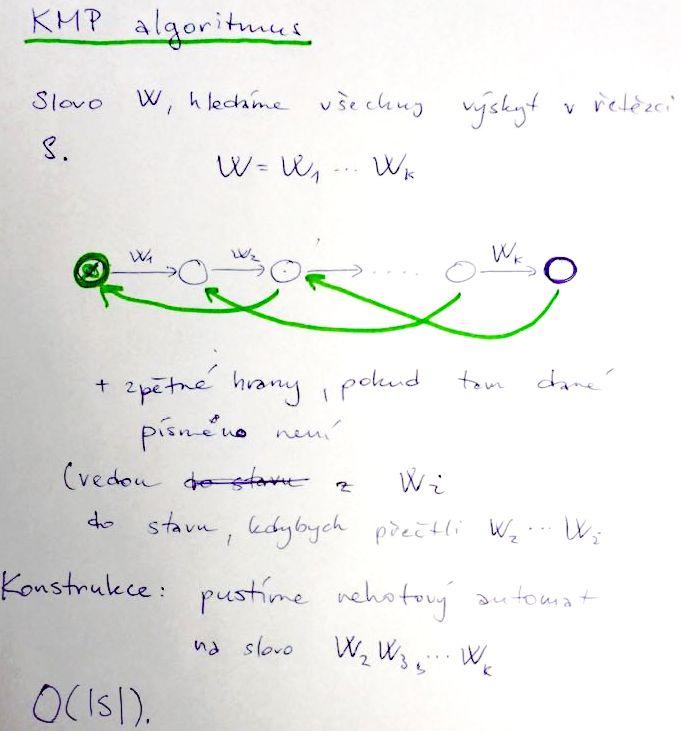 KMP algoritmus
Slovo W, hledáme všechny výskyt v řetězci
S.
W = W₁ ... Wₖ
W₁ W₂ .... Wₖ
+ zpětné hrany, pokud tam dané
písmeno není
(vedou do stavu z Wᵢ
do stavu, kdybych přečtli W₂ ... Wᵢ
Konstrukce: pustíme nehotový automat
na slovo W₂ W₃, ... Wₖ
O(|S|).